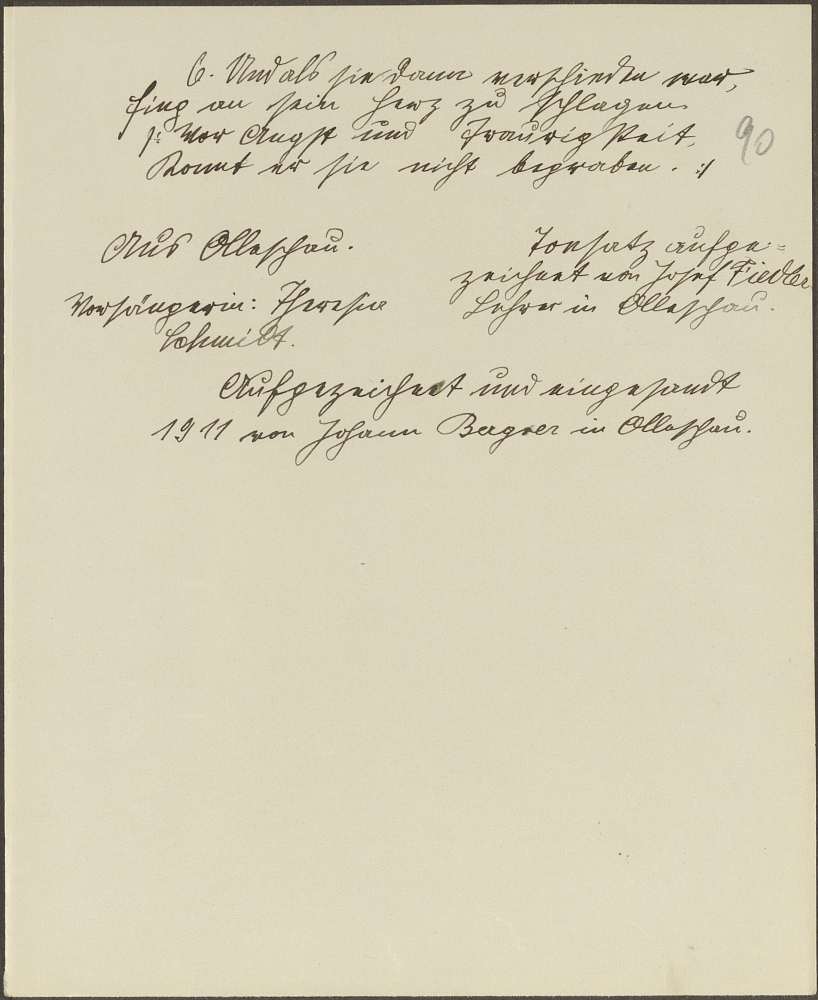 6. Und als sie dann verschieden war,
fing an sein Herz zu schlagen
|: Vor Angst und Traurigkeit,
Konnt er sie nicht begraben. :|
90
Aus Olleschau.
Vorsängerin: Theresia
Schmidt.
Tonsatz aufge=
zeichnet von Josef Fiedler
Lehrer in Olleschau.
Aufgezeichnet und eingesandt
1911 von Johann in Olleschau.